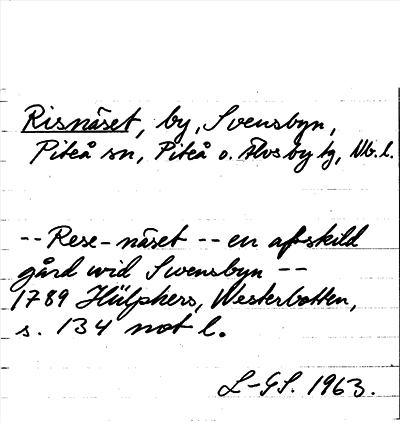 Risnäset, by, Svensbyn,
Piteå sn, Piteå o. Älvsby tg, Nb.l.
-- Rese-näset -- en afskild
gård wid Swensbyn --
1789 Hülphers, Westerbotten,
s. 134 not l.
L-GS. 1963.